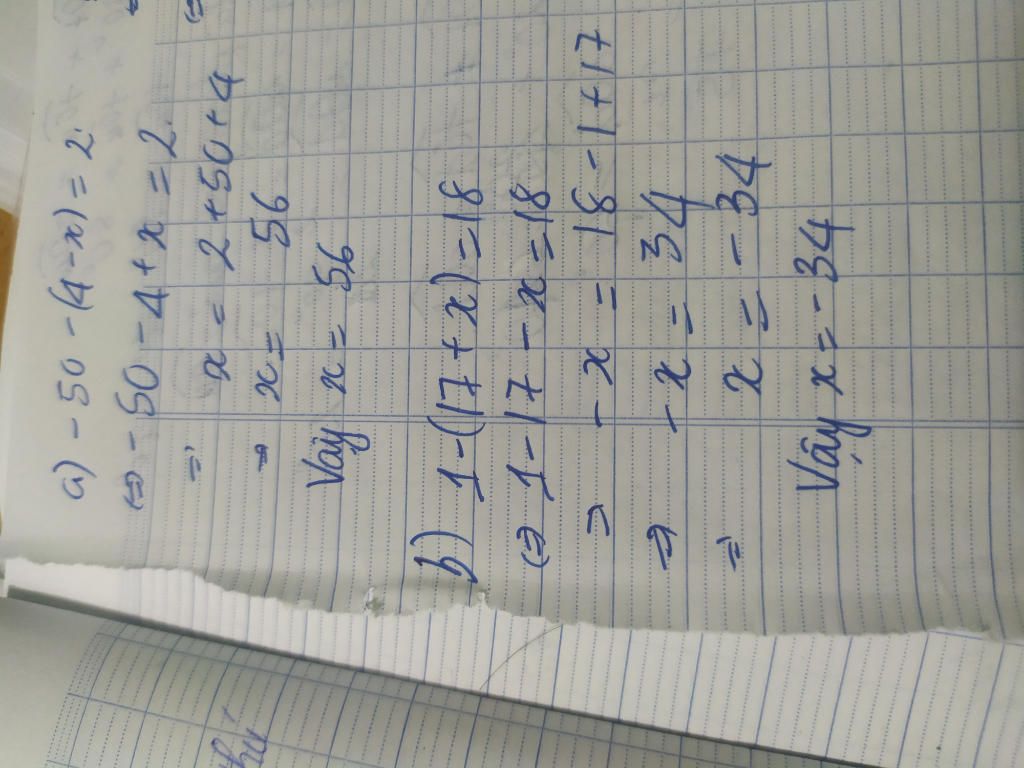 a) - 50 - (4 - x) = 2
⇔ - 50 - 4 + x = 2
⇒ x = 2 + 50 + 4
⇒ x = 56
Vậy x = 56
b) 1 - (17 + x) = 18
⇔ 1 - 17 - x = 18
⇒ - x = 18 - 1 + 17
⇒ - x = 34
⇒ x = - 34
Vậy x = - 34